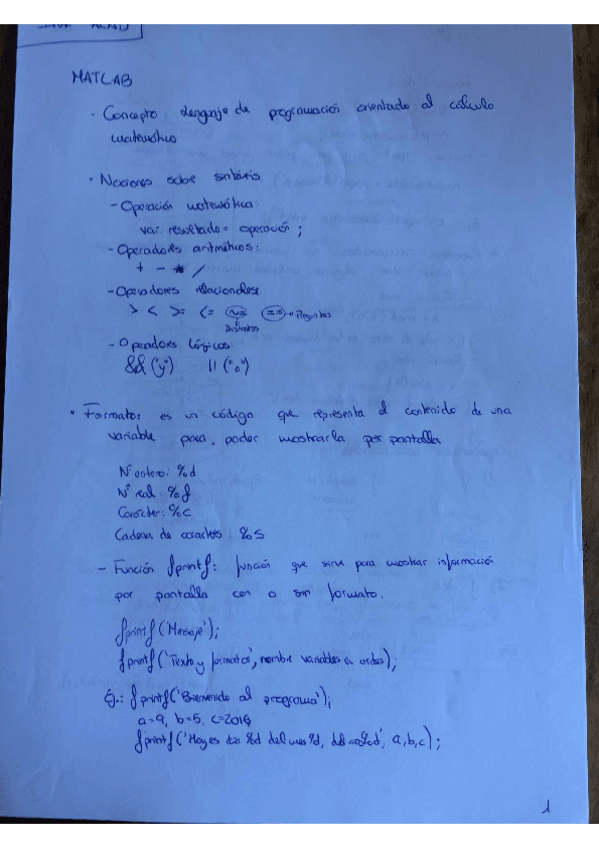 MATLAB
· Concepto: lenguaje de programación orientado al cálculo
matemático
· Nociones sobre sintáxis
- Operación matemática:
var. resultado = operación ;
- Operadores aritméticos:
+ - * /
- Operadores relacionales:
> < >= <= ~= == → Preguntas
Distintos
- Operadores lógicos:
&& ("y") || ("o")
· Formato: es un código que representa el contenido de una
variable para poder mostrarla por pantalla
Nº entero: %d
Nº real: %f
Carácter: %c
Cadena de caracteres: %s
- Función fprintf: función que sirve para mostrar información
por pantalla con o sin formato.
fprintf('Mensaje');
fprintf('Texto y formatos', nombre variables en orden);
Ej.: fprintf('Bienvenido al programa');
a=9, b=5, c=2019
fprintf('Hoy es día %d del mes %d, del año %d', a,b,c);
1